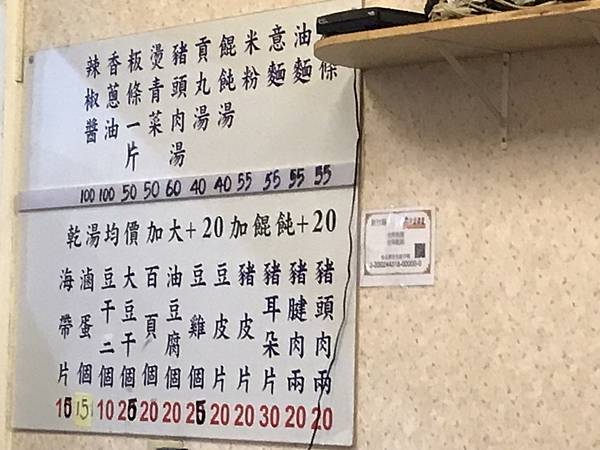 條
油麵
意麵
米粉
餛飩湯
貢丸湯
豬頭肉湯
燙青菜
粄條一片
香蔥油
辣椒醬
100 100 50 50 60 40 40 55 55 55 55
乾湯均價加大+20加餛飩+20
豬頭肉兩
豬腱肉兩
豬耳朵片
豬皮片
豆皮片
豆雞個
油豆腐個
百頁個
大豆干個
豆干二個
滷蛋個
海帶片
15 15 10 25 20 20 25 20 20 30 20 20